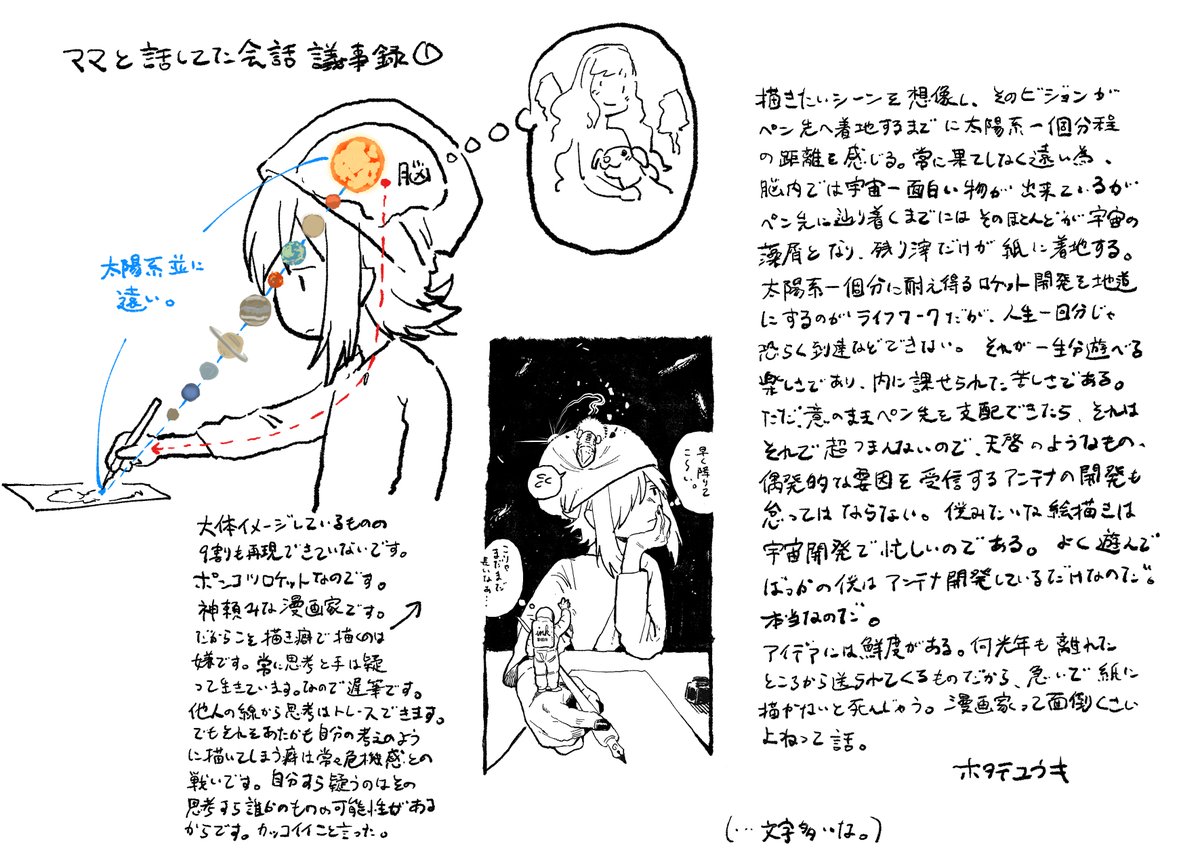 ママと話してた会話 議事録①
脳
太陽系並に
遠い。
大体イメージしているものの
9割も再現できていないです。
ポンコツロケットなのです。
神頼みな漫画家です。
だからこそ描き癖で描くのは
嫌です。常に思考と手は疑
って生きています。なので遅筆です。
他人の線から思考はトレースできます。
でもそれをあたかも自分の考えのよう
に描いてしまう癖は常々危機感との
戦いです。自分すら疑うのはその
思考すら誰かのものの可能性がある
からです。カッコイイこと言った。
早く降りて
こ〜い。
こりゃ
まだまだ
長いなぁ…
ink
描きたいシーンを想像し、そのビジョンが
ペン先へ着地するまでに太陽系一個分程
の距離を感じる。常に果てしなく遠い為、
脳内では宇宙一面白い物が出来ているが
ペン先に辿り着くまでにはそのほとんどが宇宙の
藻屑となり、残り滓だけが紙に着地する。
太陽系一個分に耐え得るロケット開発を地道
にするのがライフワークだが、人生一回分じゃ
恐らく到達などできない。それが一生分遊べる
楽しさであり、内に課せられた苦しさである。
ただ、意のままペン先を支配できたら、それは
それで超つまんないので、天啓のようなもの、
偶発的な要因を受信するアンテナの開発も
怠ってはならない。僕みたいな絵描きは
宇宙開発で忙しいのである。よく遊んで
ばっかの僕はアンテナ開発しているだけなのだ。
本当なのだ。
アイデアには鮮度がある。何光年も離れた
ところから送られてくるものだから、急いで紙に
描かないと死んじゃう。漫画家って面倒くさい
よねって話。
ホタテユウキ
(…文字多いな。)